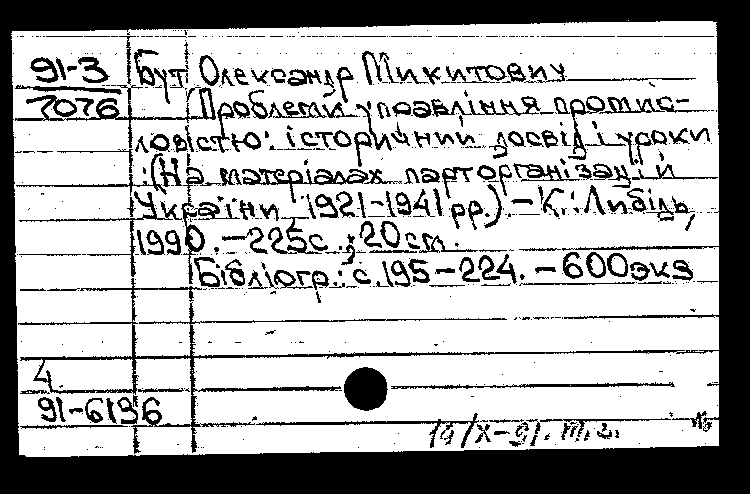 91-3 Бут Олександр Микитович
7076 Проблеми управління промис-
ловістю: історичний досвід і уроки
:(На матеріалах парторганізацій
України 1921-1941 рр.).-К.: Либідь,
1990.-225с.; 20см.
Бібліогр.: с.195-224.-600экз
4
91-6136
19/X-91. т.г.